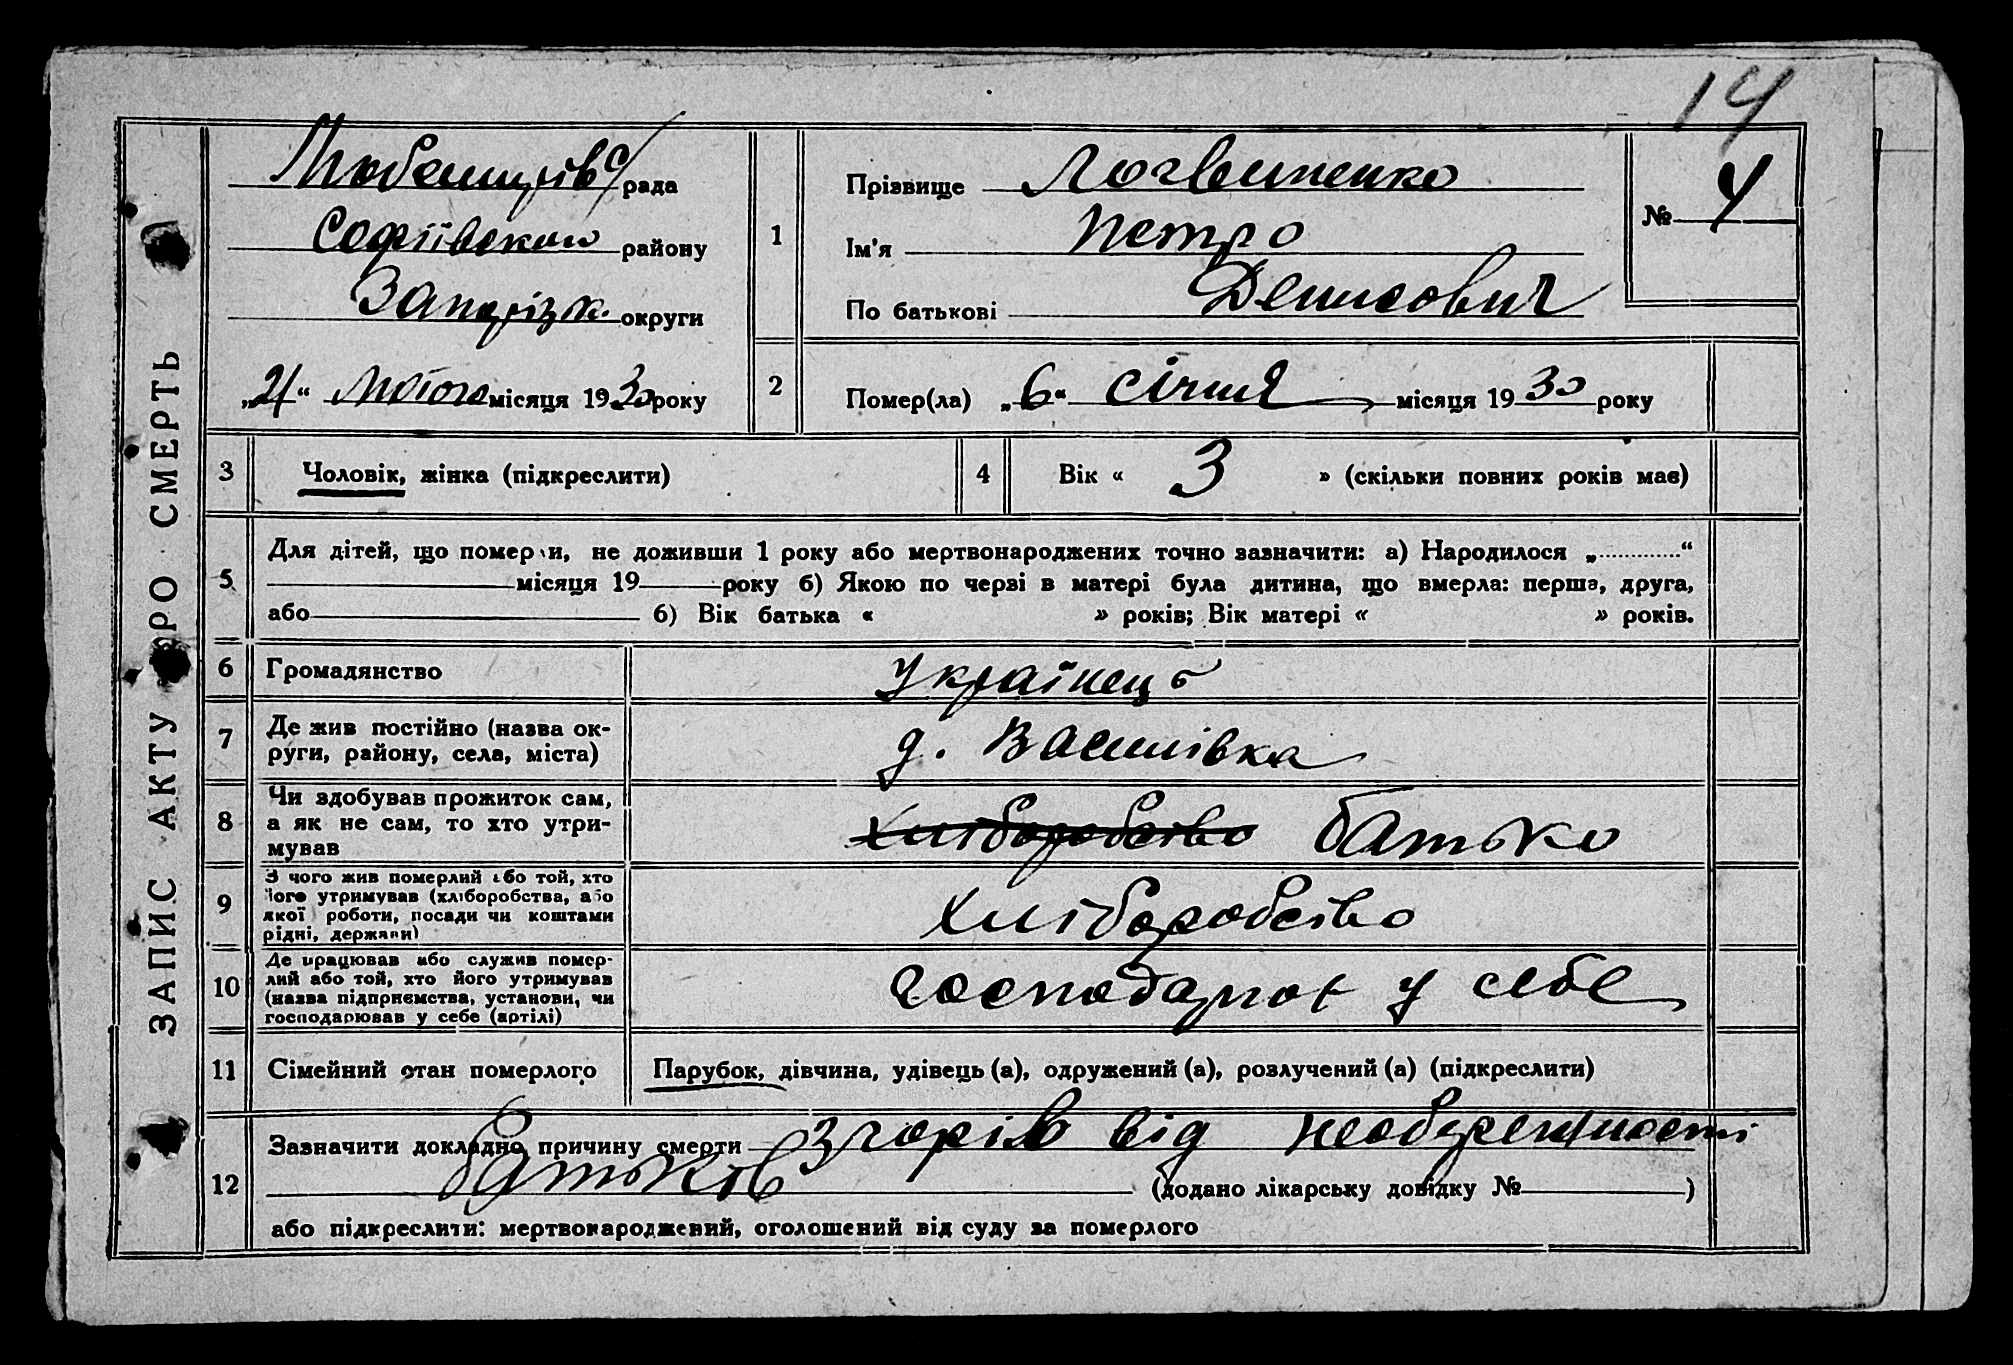 14
ЗАПИС АКТУ ПРО СМЕРТЬ
рада
Софіївськаго району
Запоріжк. округи
„21“ Лютого місяця 1930 року
1
Прізвище Логвиненко
Ім'я Петро
По батькові Денисович
№ 4
2
Помер(ла) „6“ січня місяця 1930 року
3 Чоловік, жінка (підкреслити)
4 Вік « 3 » (скільки повних років має)
5
Для дітей, що померли, не доживши 1 року або мертвонароджених точно зазначити: а) Народилося „............“
місяця 19 року б) Якою по черві в матері була дитина, що вмерла: перша, друга,
або б) Вік батька « » років; Вік матері « » років.
6 Громадянство Українець
7 Де жив постійно (назва ок-
руги, району, села, міста) д. Василівка
8 Чи здобував прожиток сам,
а як не сам, то хто утри-
мував хліборобство батько
9 З чого жив померлий або той, хто
його утримував (хліборобства, або
якої роботи, посади чи коштами
рідні, держави) хліборобство
10 Де працював або служив помер-
лий або той, хто його утримував
(назва підприємства, установи, чи
господарював у себе (артілі) господарює у себе
11 Сімейний стан померлого Парубок, дівчина, удівець (а), одружений (а), розлучений (а) (підкреслити)
12
Зазначити докладно причину смерти згорів від необережности
батьков (додано лікарську довідку № )
або підкреслити: мертвонароджений, оголошений від суду за померлого